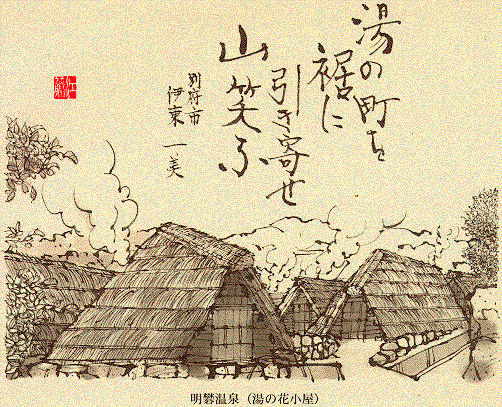 湯の町を
裾に
引き寄せ
山笑ふ
別府市
伊東 一美
明礬温泉（湯の花小屋）